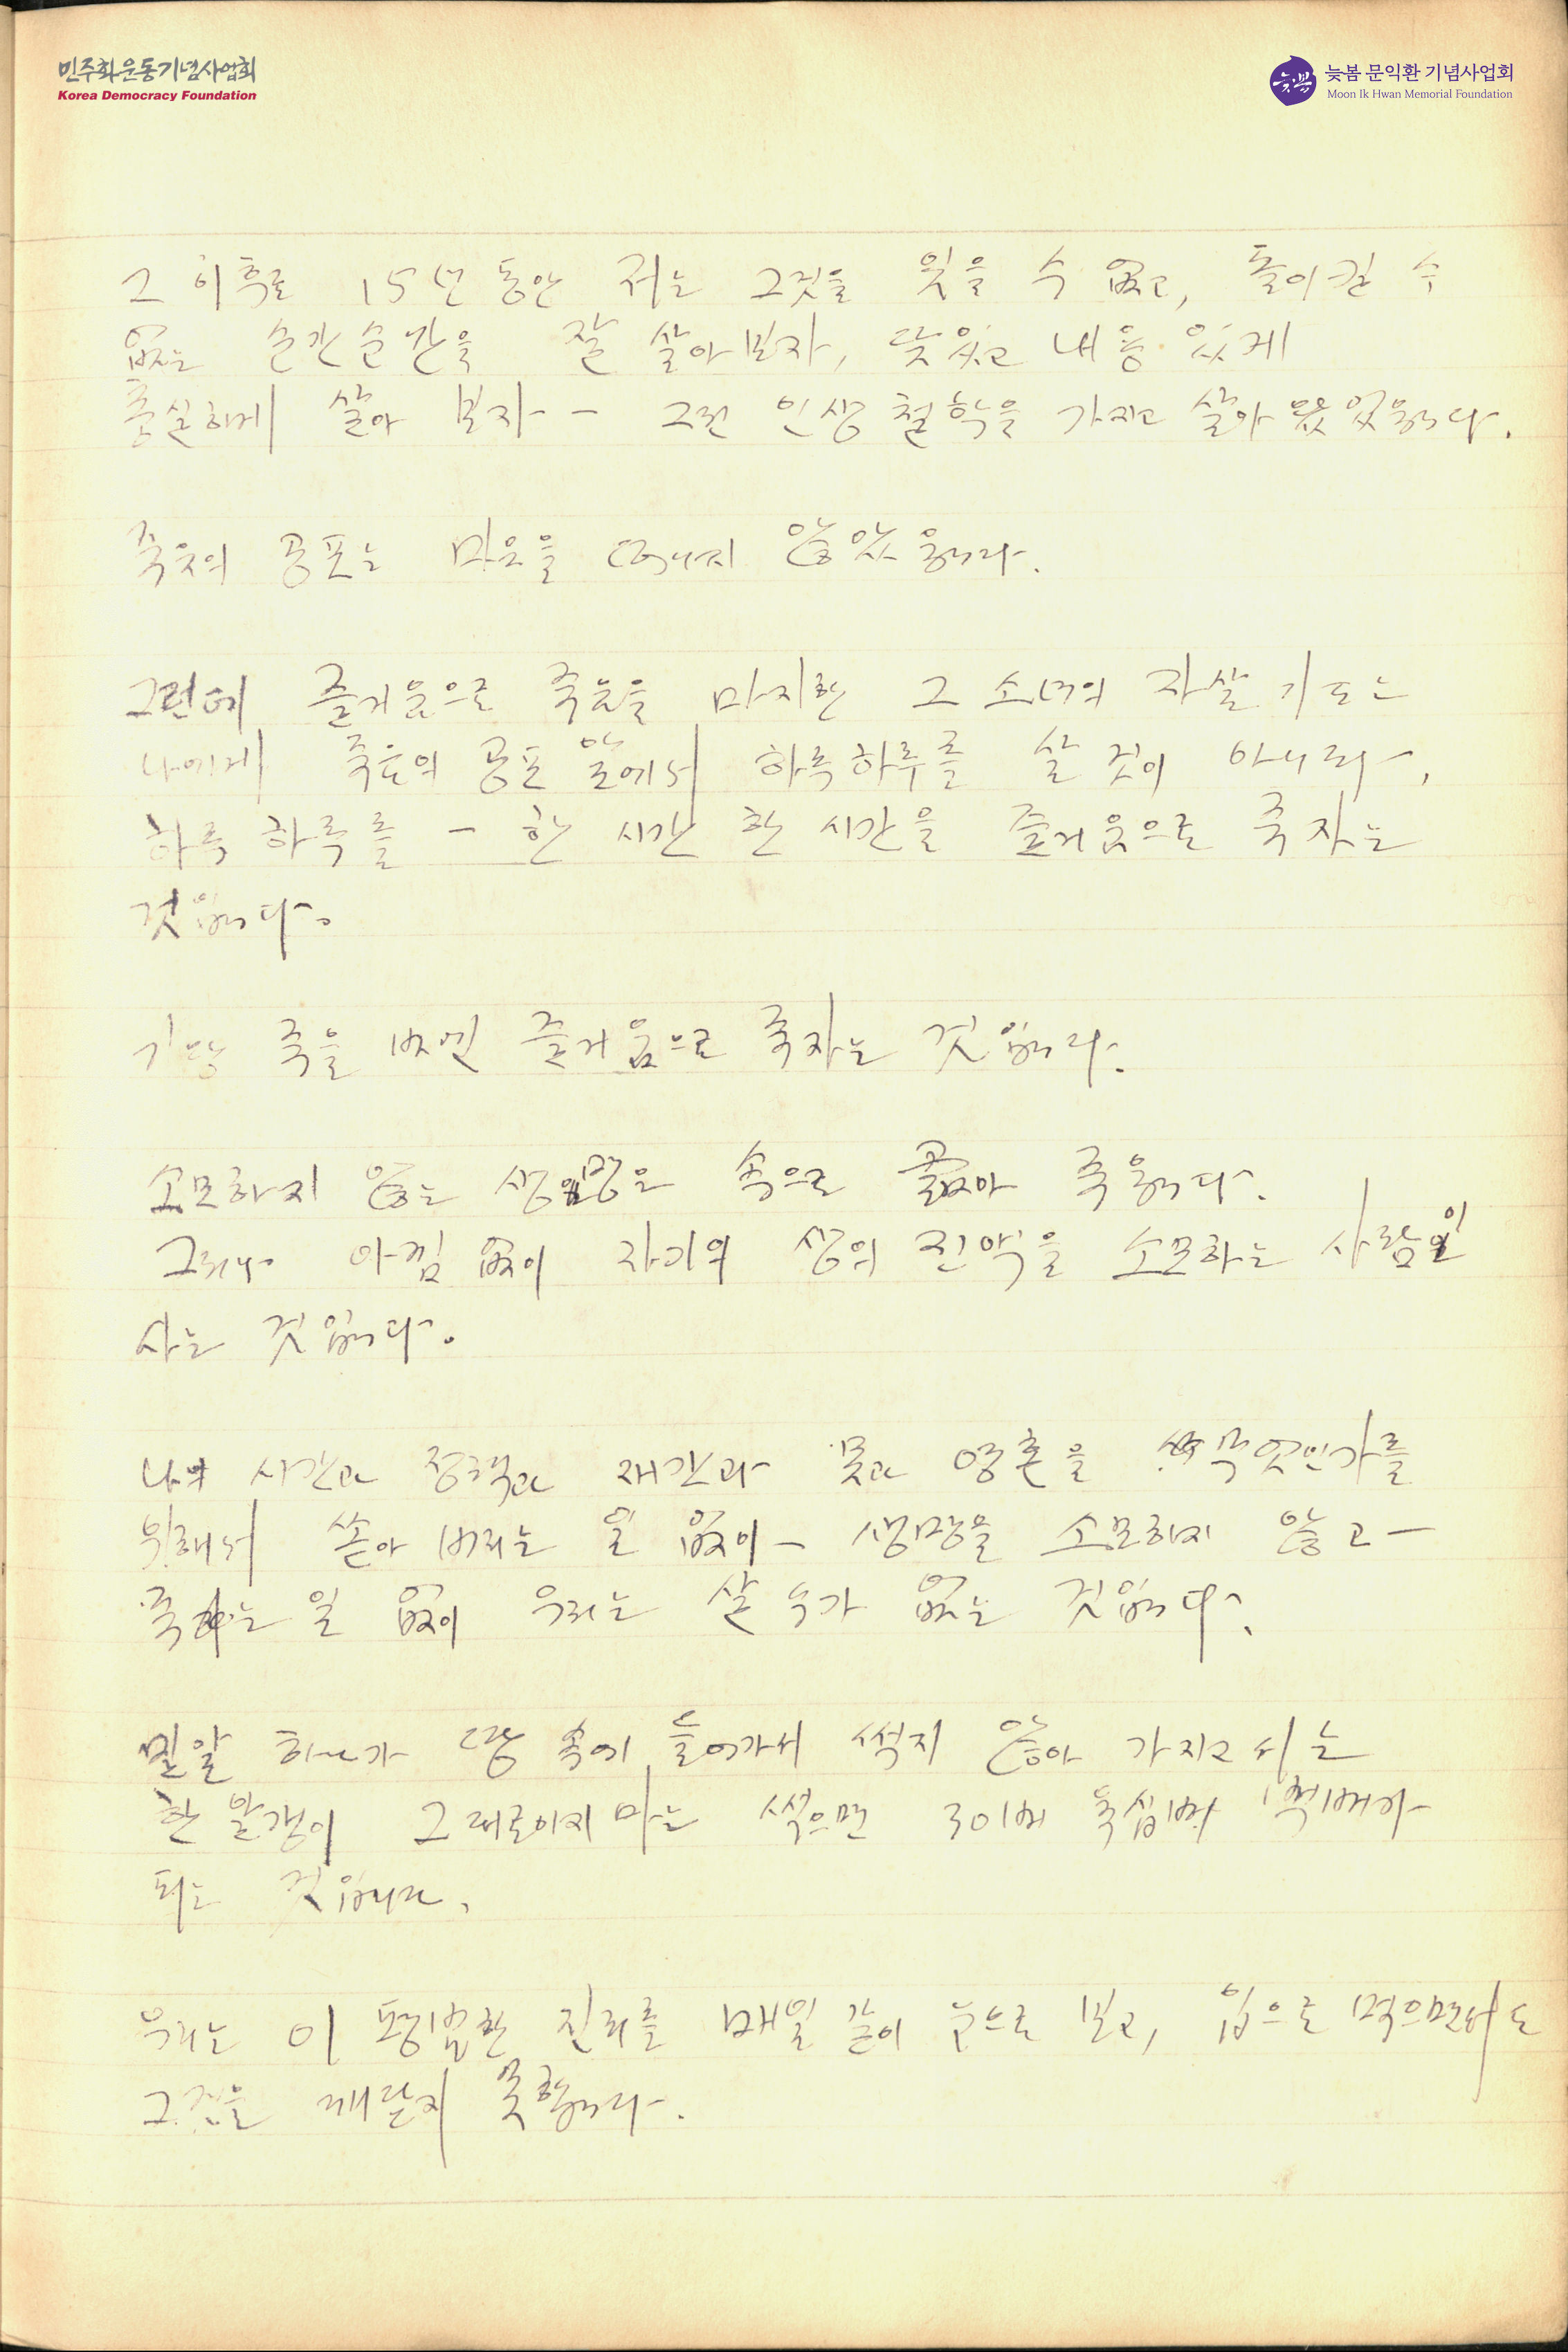 민주화운동기념사업회
Korea Democracy Foundation
늦봄 문익환 기념사업회
Moon Ik Hwan Memorial Foundation
그 이후로 15년 동안 저는 그것을 잊을 수 없고, 돌이킬 수
없는 순간순간을 잘 살아보자, 뜻있고 내용 있게
충실하게 살아 보자 - - 그런 인생 철학을 가지고 살아 왔었읍니다.
죽음의 공포는 마음을 떠나지 않았읍니다.
그런데 즐거움으로 죽음을 마지한 그 소녀의 자살 기도는
나에게 죽음의 공포 앞에서 하루하루를 살 것이 아니라,
하루 하루를 - 한 시간 한 시간을 즐거움으로 죽자는
것입니다.
기왕 죽을 바엔 즐거움으로 죽자는 것입니다.
소모하지 않는 생명은 속으로 곪아 죽읍니다.
그러나 아낌없이 자기의 생의 진액을 소모하는 사람이
사는 것입니다.
나의 시간과 정력과 재간과 몸과 영혼을 무엇인가를
위해서 쏟아 버리는 일 없이 - 생명을 소모하지 않고 -
죽는 일 없이 우리는 살 수가 없는 것입니다.
밀알 하나가 땅 속에 들어가서 썩지 않아 가지고서는
한 알갱이 그대로이지마는 썩으면 30배 육십배 백배가
되는 것입니다.
우리는 이 평범한 진리를 매일 같이 눈으로 보고, 입으로 먹으면서도
그것을 깨닫지 못합니다.